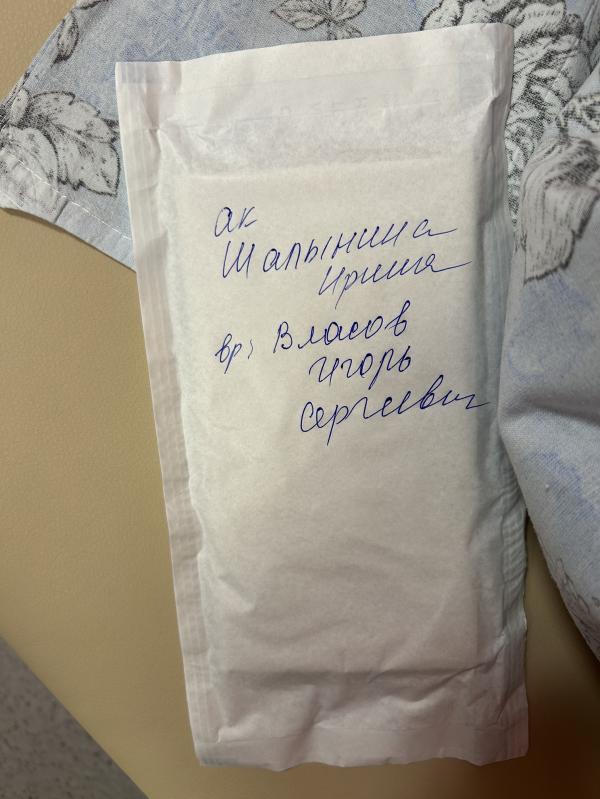 ак
Шапынина
Ирина
вр: Власов
Игорь
Сергеевич